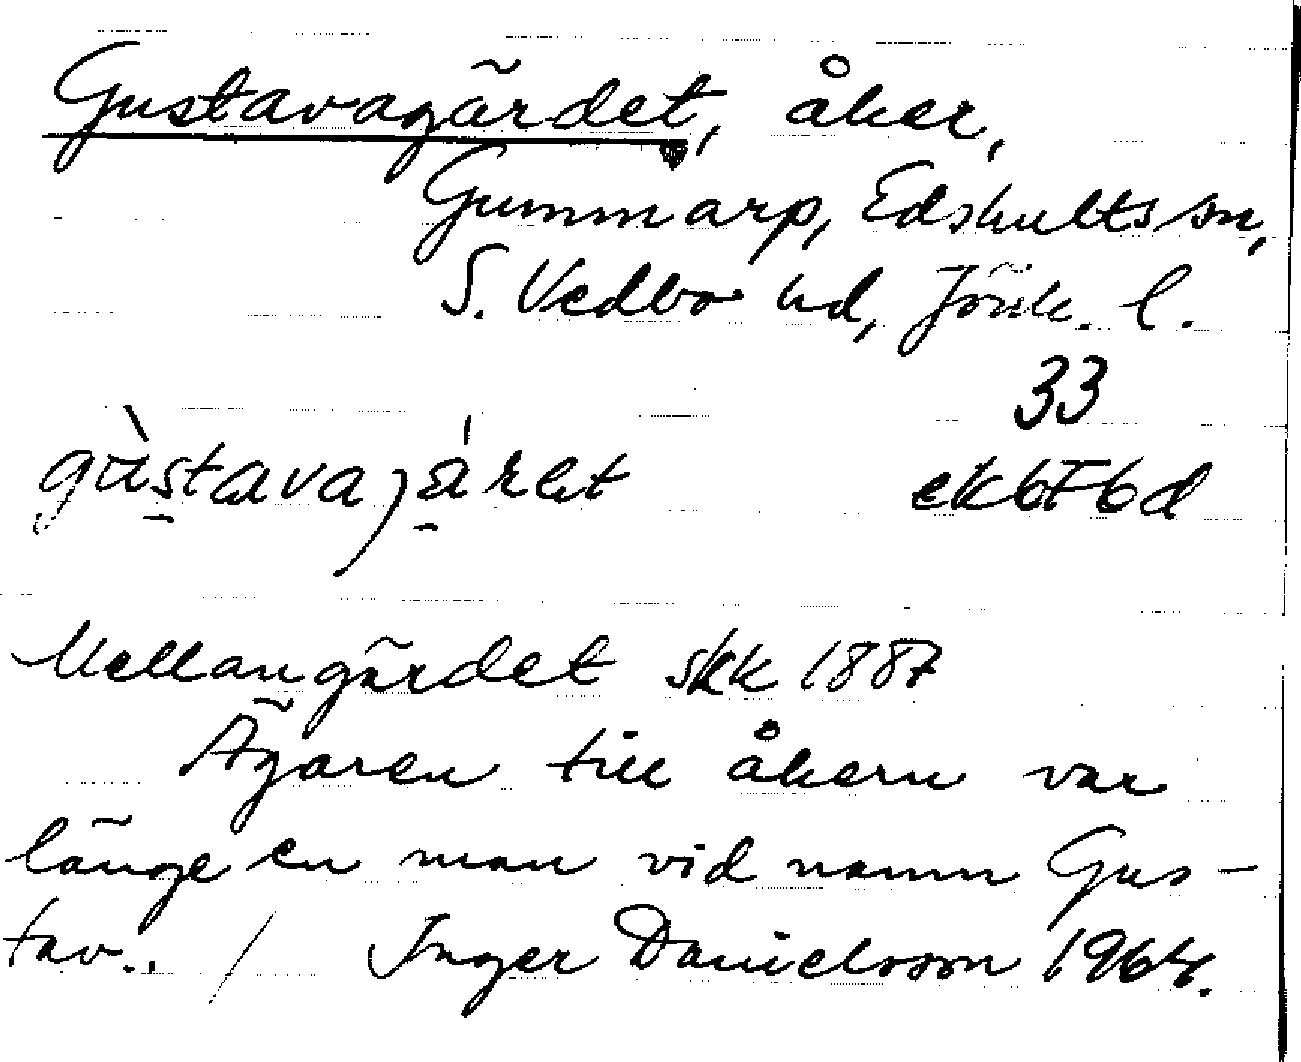 Gustavagärdet, åker,
Gummarp, Edshults sn,
S. Vedbo hd, Jönk. l.
33
gùstavajä́ret ek6F6d
Mellangärdet skk 1887
Ägaren till åkern var
länge en man vid namn Gus-
tav.. / Inger Danielsson 1964.